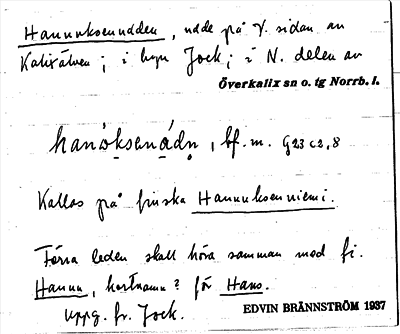 Hannuksenudden, udde på V. sidan av
Kalixälven; i byn Jock; i N. delen av
Överkalix sn o. tg Norrb. l.
hanoksenádn, bf. m. G23 c2,8
Kallas på finska Hannuksenniemi.
Förra leden skall höra samman med fi.
Hannu, kortnamn? för Hans.
Uppg. fr. Jock.
EDVIN BRÄNNSTRÖM 1937